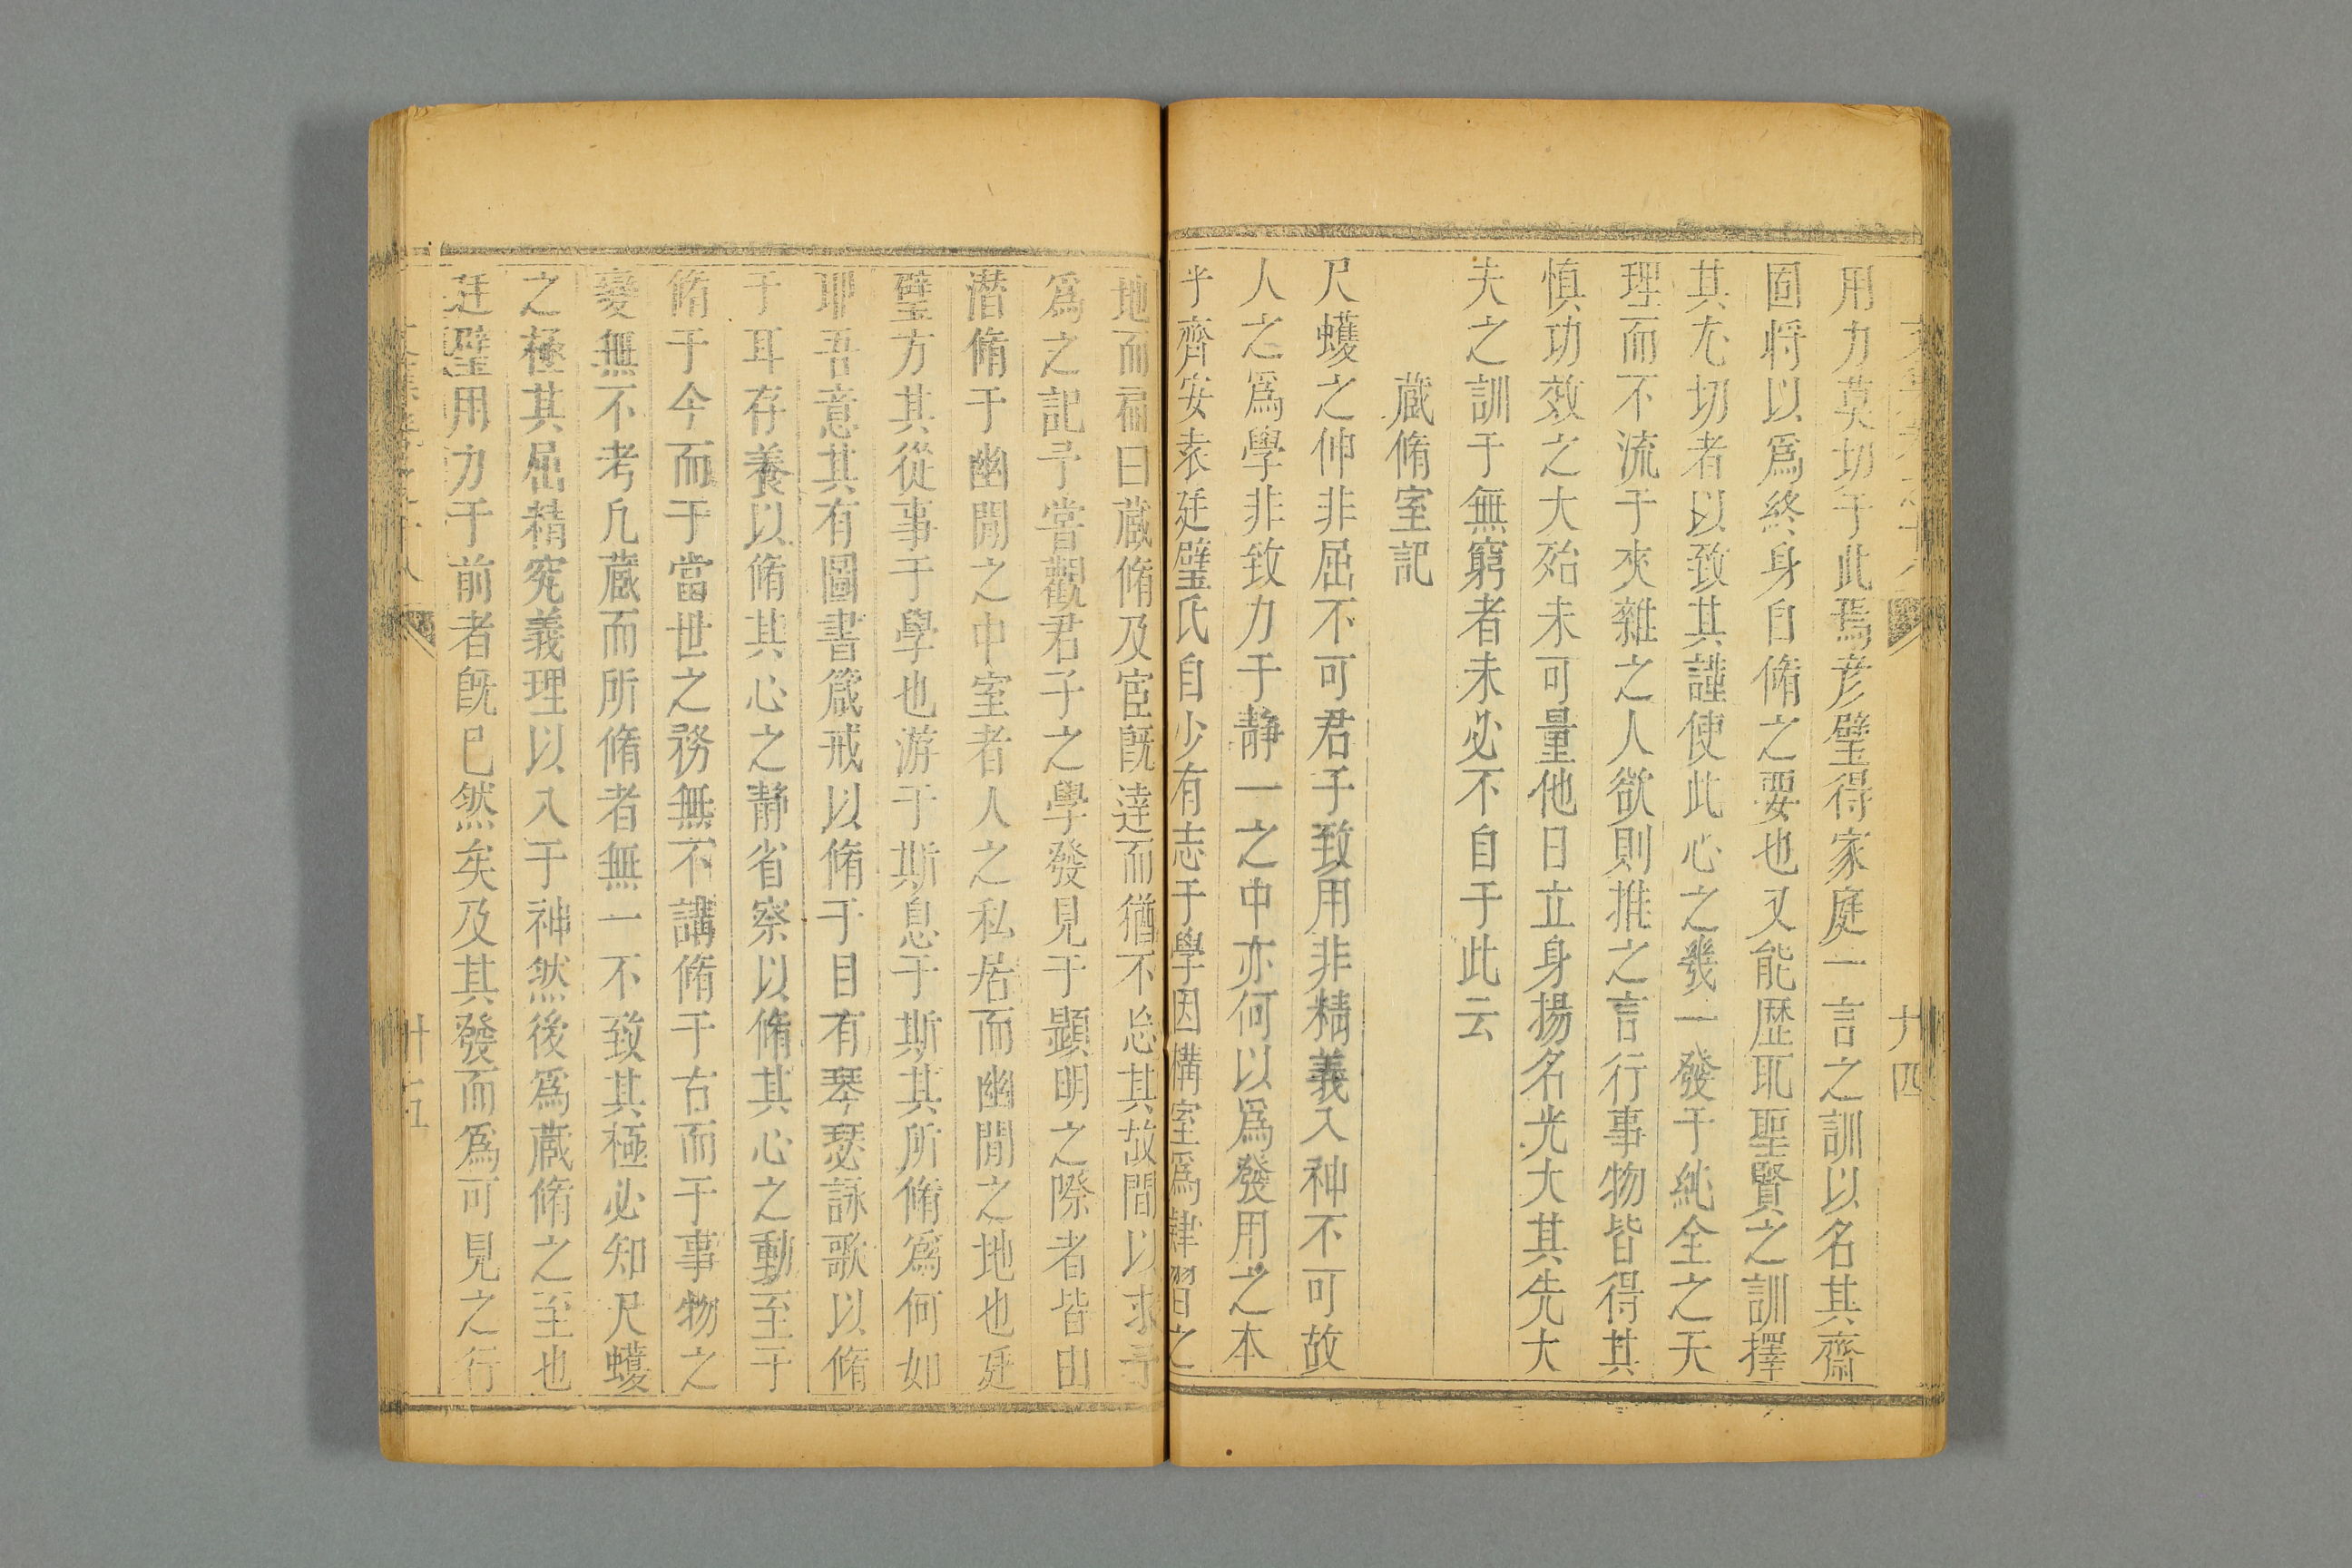 用力莫切于此焉彦璧得家庭一言之訓以名其齋
固将以爲終身自脩之要也又能歴玩聖賢之訓擇
其尤切者以致其謹使此心之幾一發于純全之天
理而不流于夾雜之人欲則推之言行事物皆得其
慎功效之大殆未可量他日立身揚名光大其先大
夫之訓于無窮者未必不自于此云
蔵脩室記
尺蠖之伸非屈不可君子致用非精義入神不可故
人之爲學非致力于静一之中亦何以爲發用之本
乎齊安袁廷璧氏自少有志于學因構室爲肄習之
地而扁曰蔵脩及宦既達而猶不忘其故間以求予
爲之記予嘗觀君子之學發見于顕明之際者皆由
潜脩于幽閒之中室者人之私居而幽閒之地也廷
璧方其從事于學也游于斯息于斯其所脩爲何如
耶吾意其有圖書箴戒以脩于目有琴瑟詠歌以脩
于耳存養以脩其心之静省察以脩其心之動至于
脩于今而于當世之務無不講脩于古而于事物之
變無不考凢蔵而所脩者無一不致其極必知尺蠖
之極其屈精究義理以入于神然後爲蔵脩之至也
廷璧用力于前者旣已然矣及其發而爲可見之行
廿四
廿五